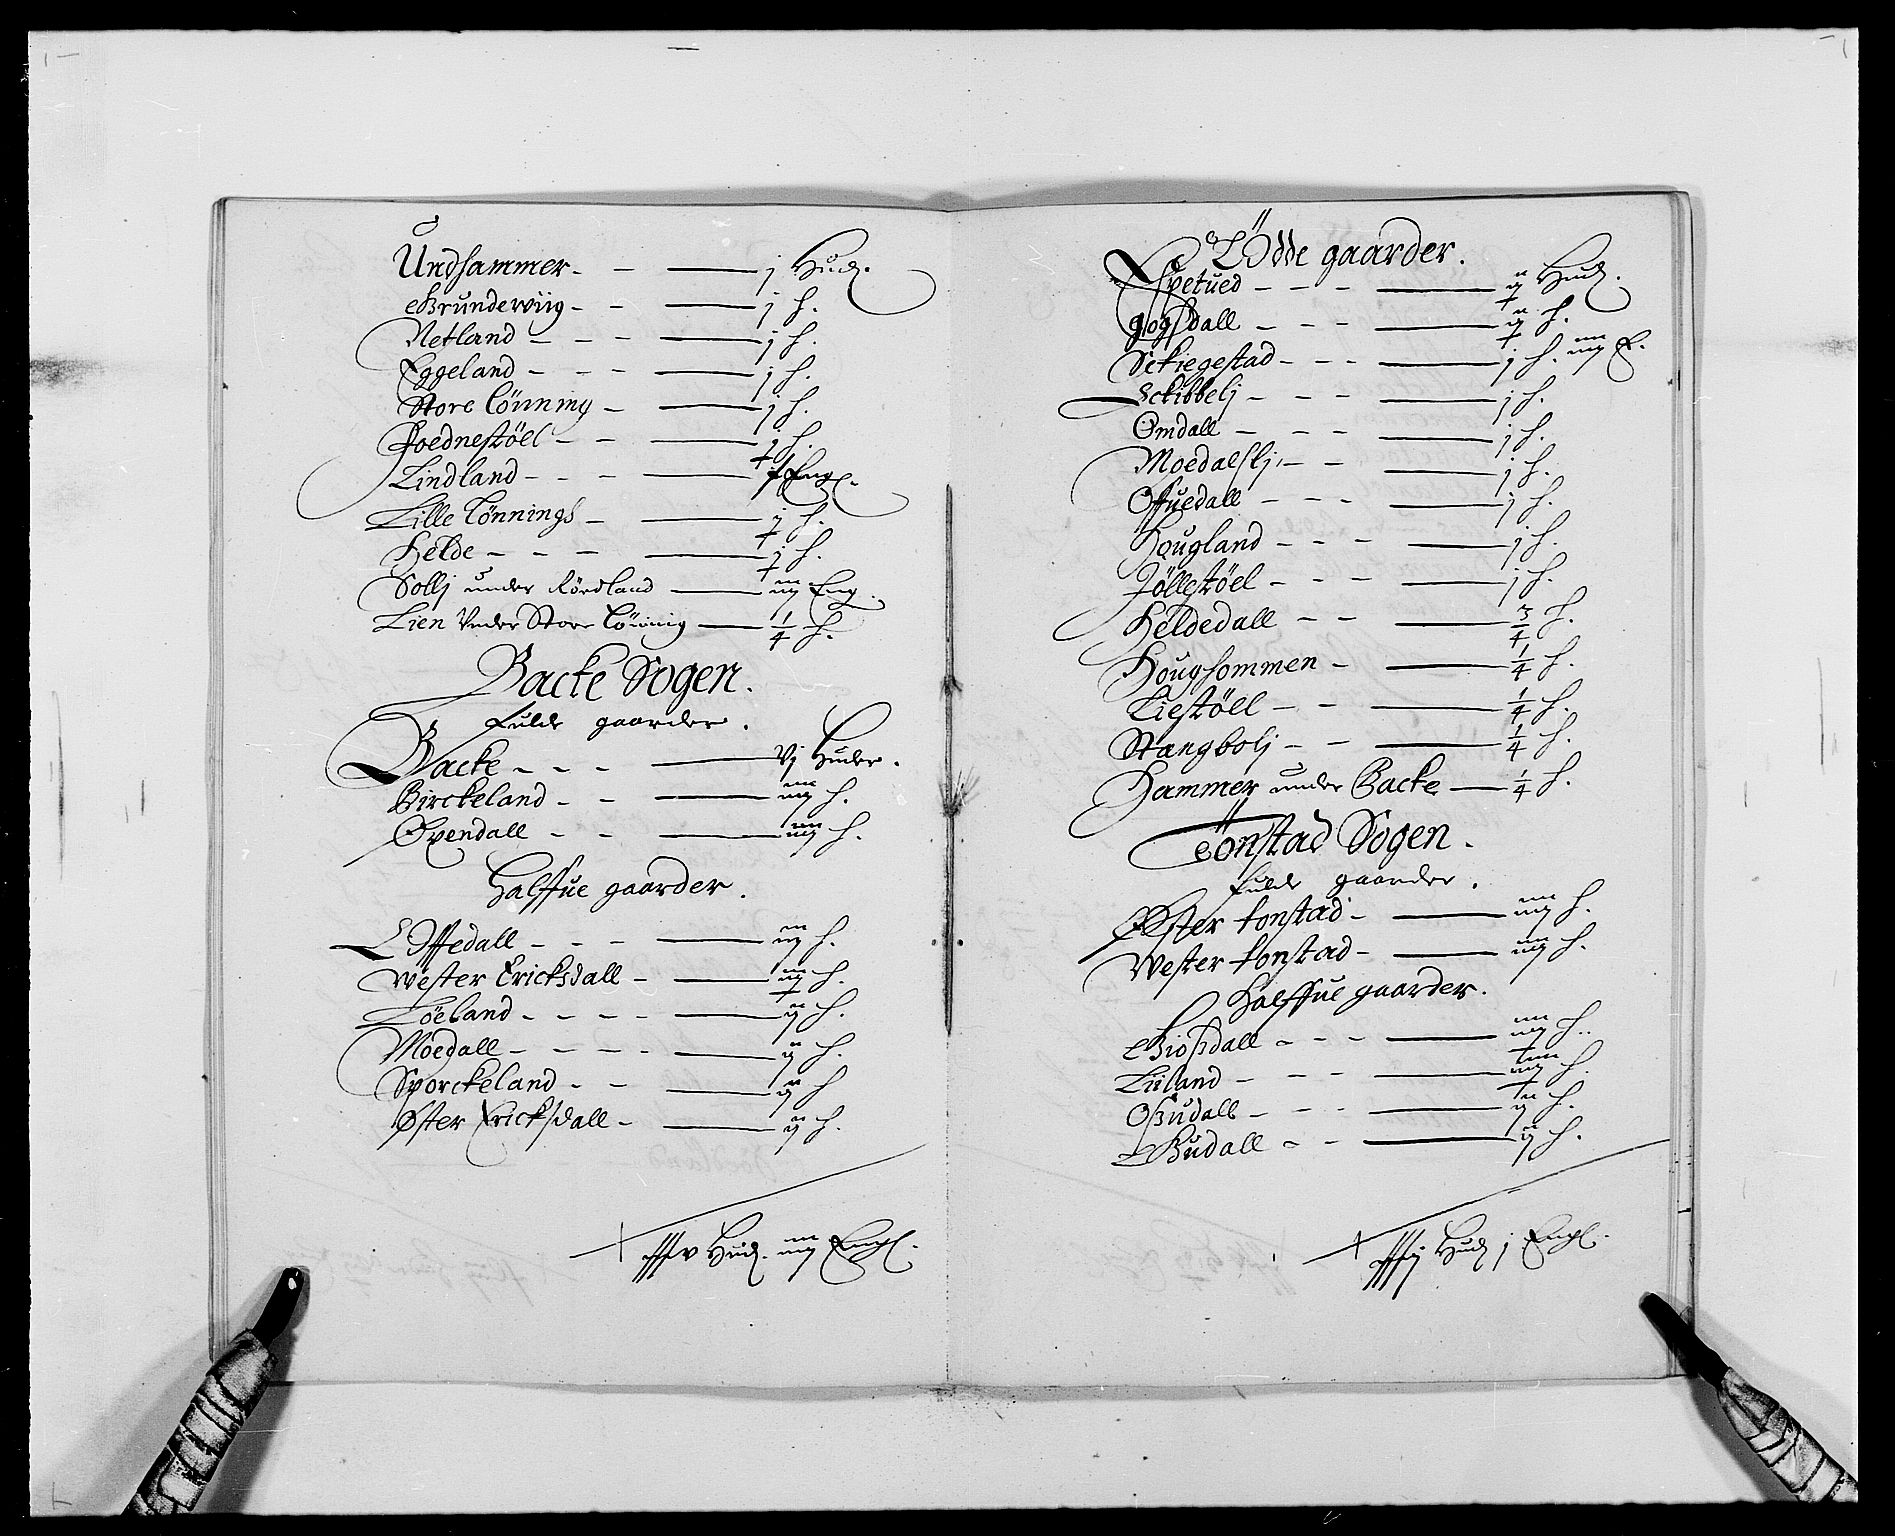 Undhammer - - — j Hud.
Grunderviig - - — j h.
Netland - - - — j h.
Eggeland - - - — j h.
Store Lönning - — j h.
Joednestöel - - — j h.
Lindland - - - — Engl.
Lille Lönnings - — j h.
Helde - - - — j h.
Sollj under Rördland — iij Eng.
Lien Under Store Lönnig — 1/4 h.
Backe Sogen.
Fulde gaarder.
Backe - - - — Vj Huder.
Birckeland - - — iiij h.
Øvendall - - — iiij h.
Halffue gaarder.
Eiffedall - - - — iij h.
Wester Ericksdall - — iij h.
Löeland - - - - — ij h.
Moedall - - - - — ij h.
Sporckeland - - — ij h
Øster Ericksdall - — ij h.
Hud. iiij Engl.
Ödde gaarder.
Espetued - - - — ij Hud.
gogsdall - - - — ij h.
Sckiegestad - - - — j h. iiij E.
Sckibbelj - - - — j h.
Omdall - - - — j h.
Moedalslj - - — j h.
Offuedall - - - — j h.
Hougland - - - — j h.
Jöllestöel - - - — j h.
Heldedall - - — 3/4 h.
Houghommen - — 1/4 h.
Liestöel - - — 1/4 h.
Stangbolj - - — 1/4 h.
Hammer under Backe — 1/4 h.
Tönstad Sogen.
Fulde gaarder.
Øster tonstad - — iiij h.
Wester tonstad - — iiij h.
Halffue gaarder.
Giosdall - - - — iiij h.
Liiland - - - — iiij h.
Ossudall - - - — ij h.
Gudall - - — ij h.
Hud j Engl.